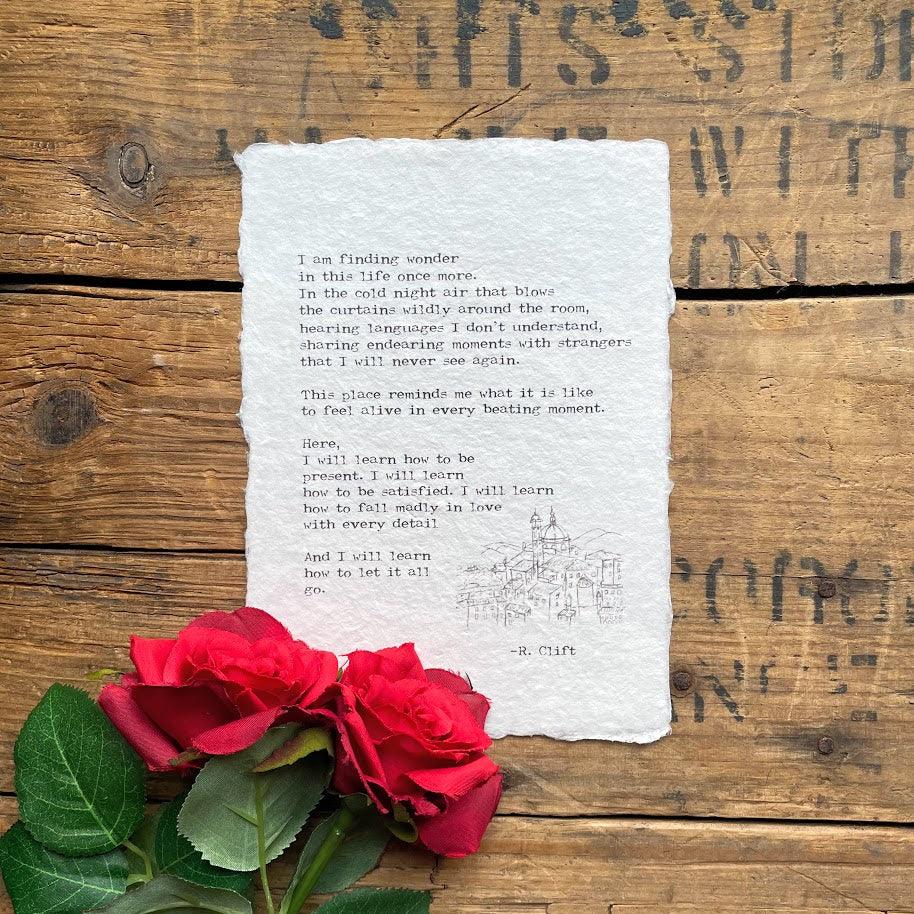 WITH
I am finding wonder
in this life once more.
In the cold night air that blows
the curtains wildly around the room,
hearing languages I don't understand,
sharing endearing moments with strangers
that I will never see again.
This place reminds me what it is like
to feel alive in every beating moment.
Here,
I will learn how to be
present. I will learn
how to be satisfied. I will learn
how to fall madly in love
with every detail
And I will learn
how to let it all
go.
-R. Clift